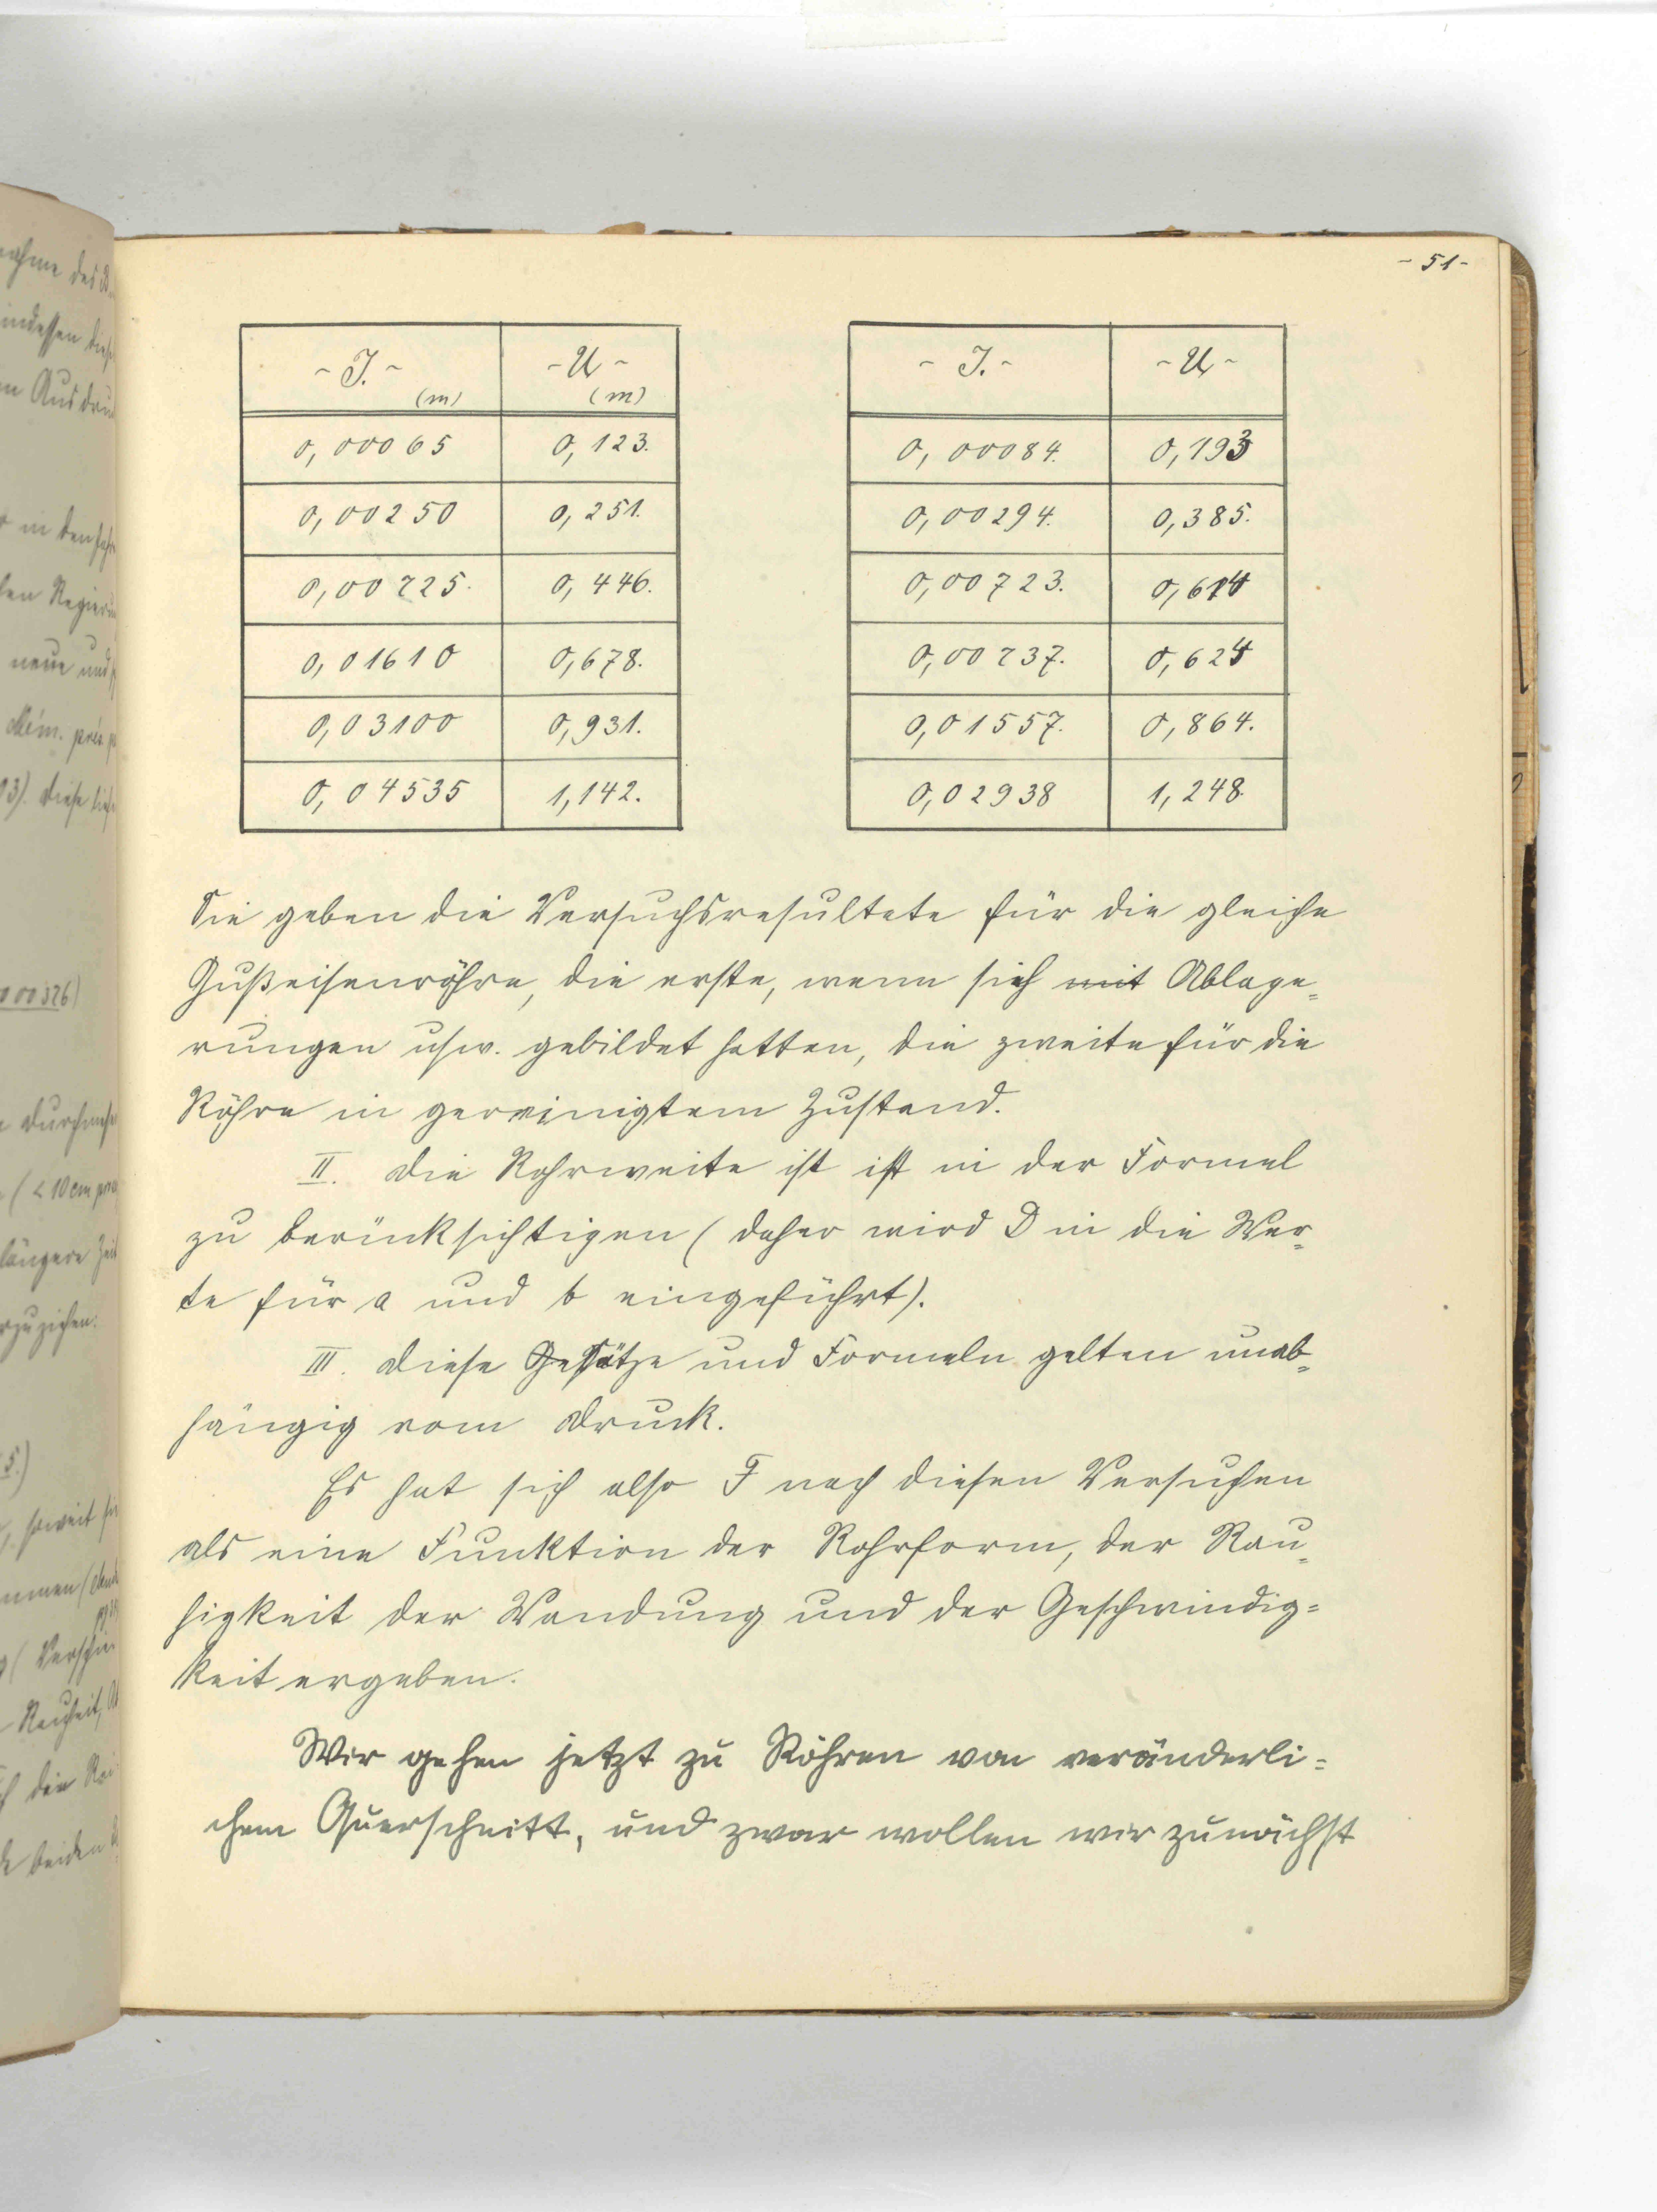 - 51 -
- J. - (m) - U - (m)
0,00065 0,123.
0,00250 0,251.
0,00725. 0,446.
0,01610 0,678.
0,03100 0,931.
0,04535 1,142.
- J. - - U -
0,00084. 0,193
0,00294. 0,385.
0,00723. 0,614
0,00737. 0,624
0,01557. 0,864.
0,02938 1,248.
Sie geben die Versuchsresultate für die gleiche
Gußeisenröhre, die erste, wenn sich mit Ablage=
rungen usw. gebildet hatten, die zweite für die
Röhre in gereinigtem Zustand.
II. Die Rohrweite ist ist in der Formel
zu berücksichtigen (daher wird D in die Wer=
te für a und b eingeführt).
III. Diese Gesätze und Formeln gelten unab=
hängig vom Druck.
Es hat sich also F nach diesen Versuchen
als eine Funktion der Rohrform, der Rau=
higkeit der Wandung und der Geschwindig=
keit ergeben.
Wir gehen jetzt zu Röhren von veränderli=
chem Querschnitt, und zwar wollen wir zunächst